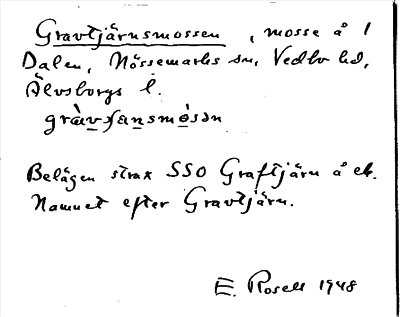 Gravtjärnsmossen, mosse å 1
Dalen, Nössemarks sn, Vedbo hd,
Älvsborgs l.
Belägen strax SSO Graftjärn å ek.
Namnet efter Gravtjärn.
E. Rosell 1948